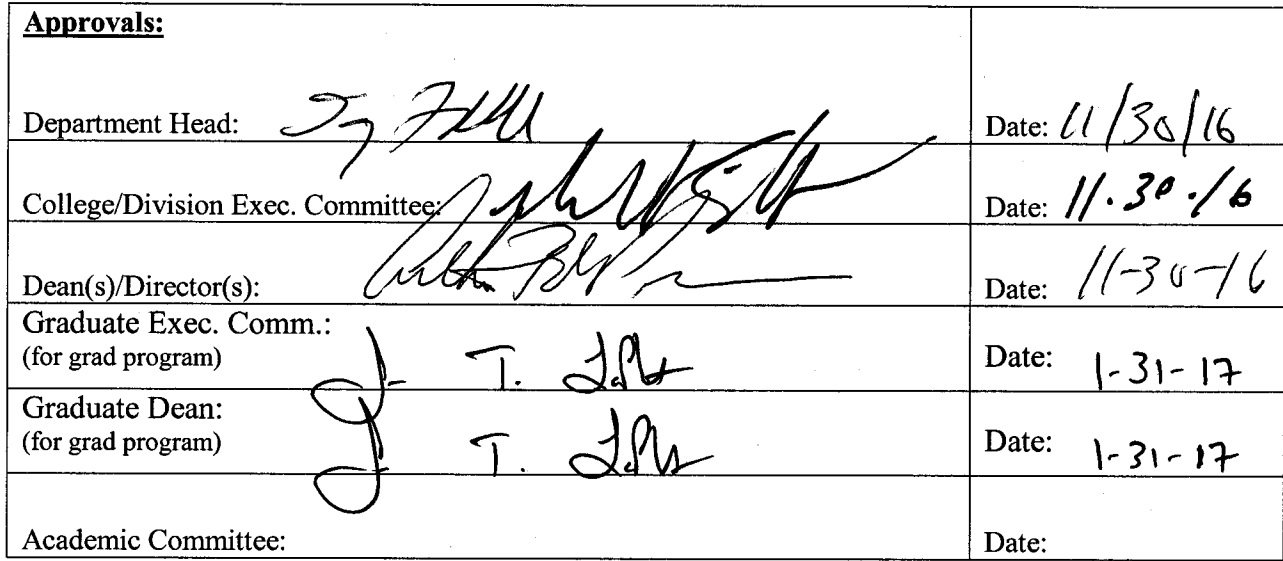 Approvals:
Department Head:
Date: 11/30/16
College/Division Exec. Committee:
Date: 11.30.16
Dean(s)/Director(s):
Date: 11-30-16
Graduate Exec. Comm.:
(for grad program)
J T.
Date: 1-31-17
Graduate Dean:
(for grad program)
J T.
Date: 1-31-17
Academic Committee:
Date: